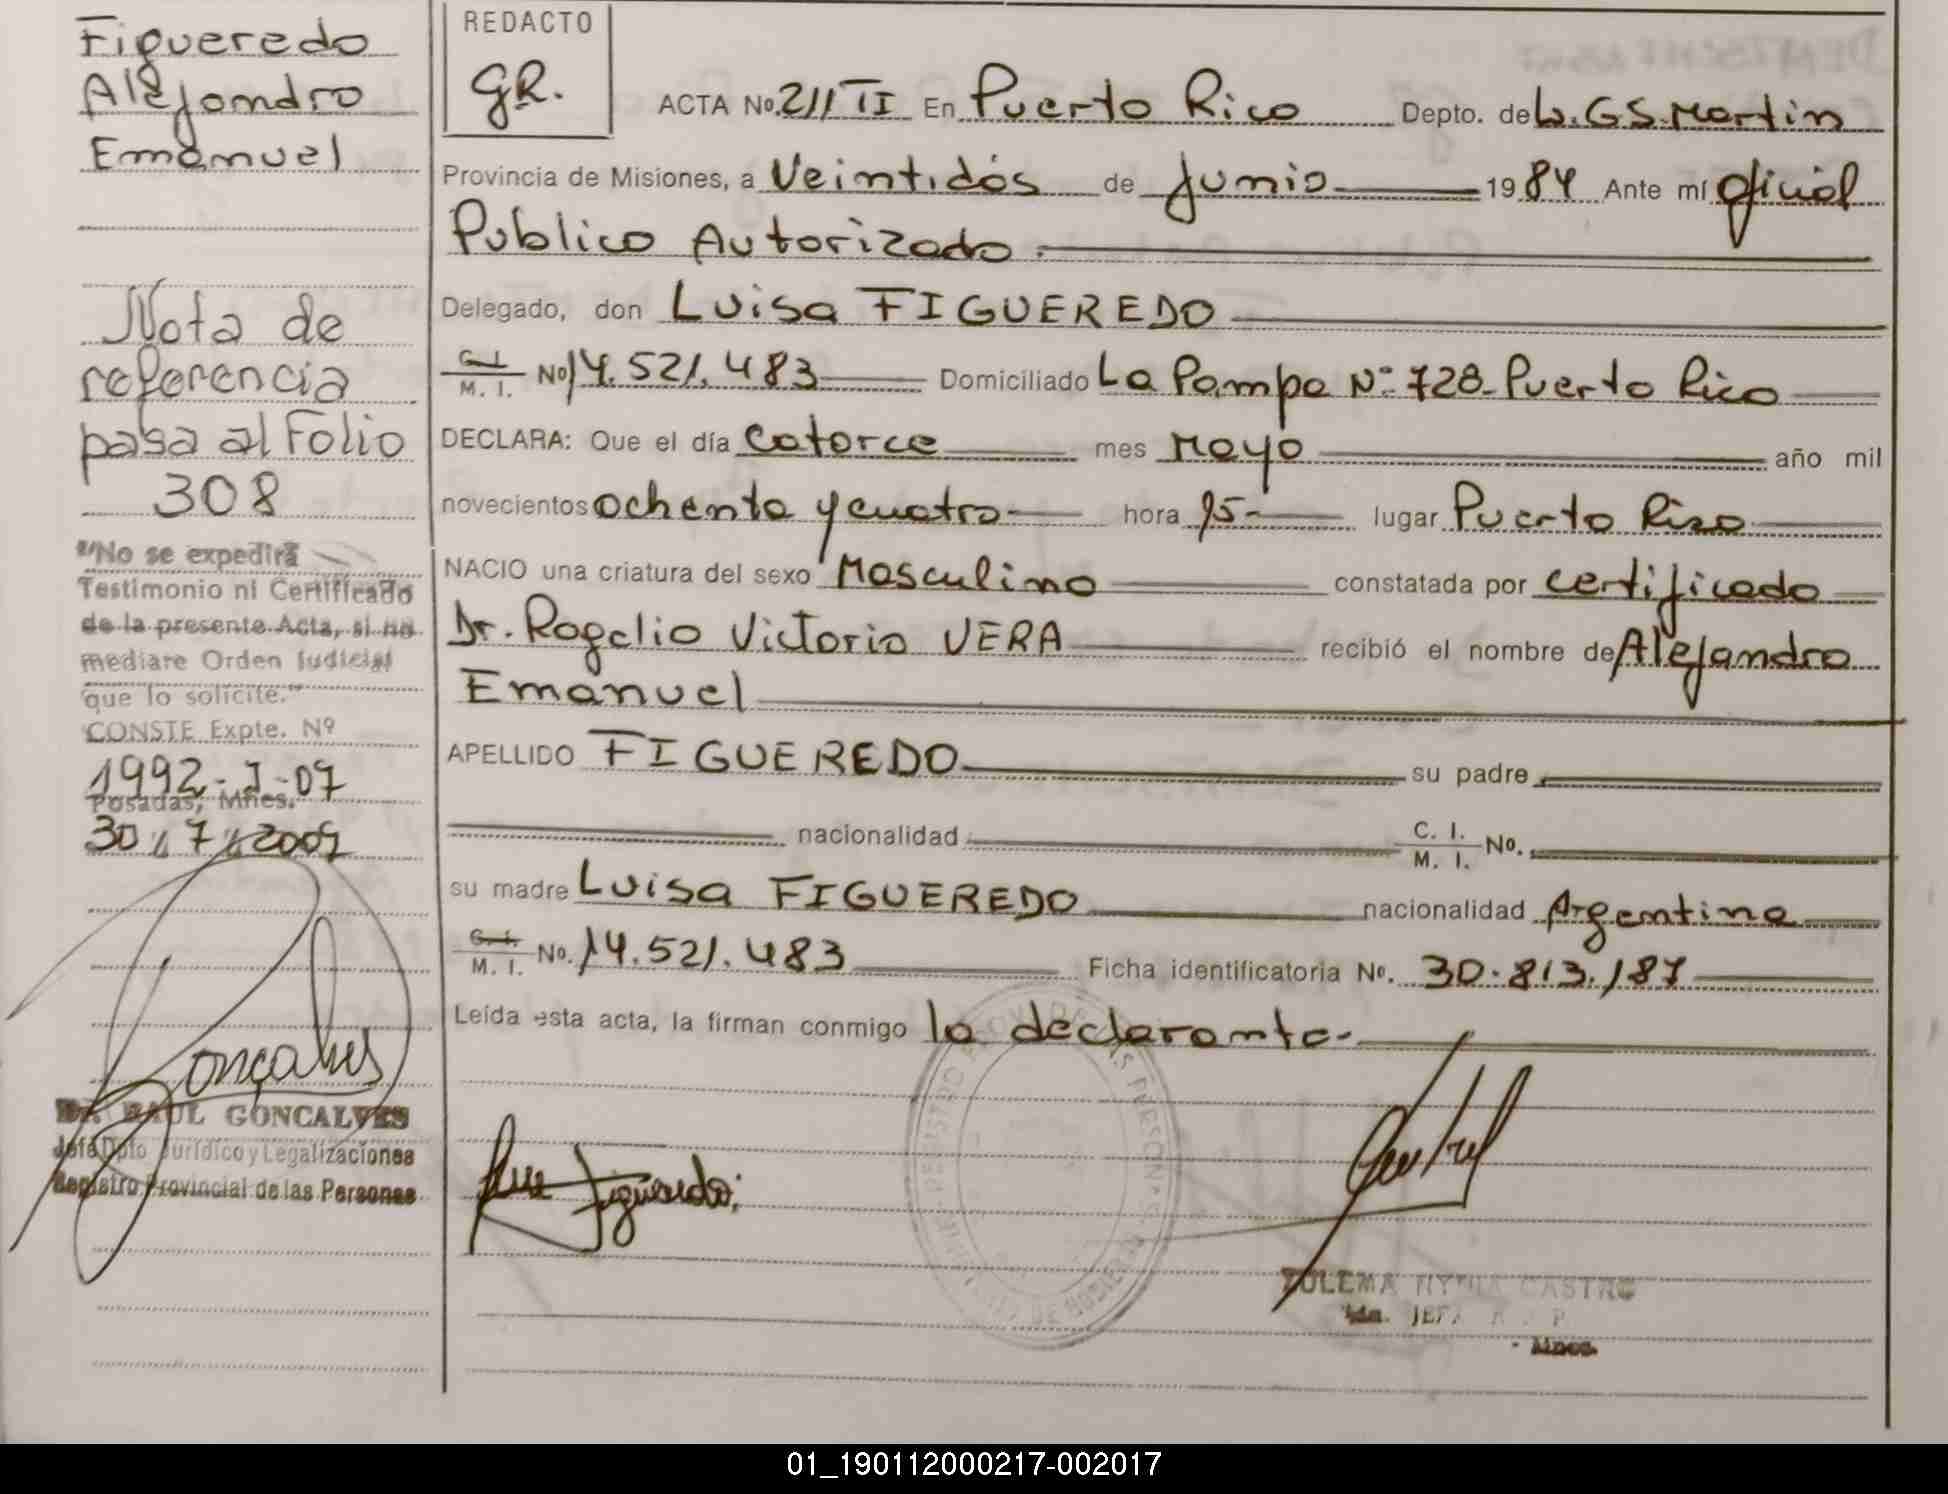 Figueredo
Alejandro
Emanuel
Nota de
referencia
pasa al Folio
308
"No se expedirá
Testimonio ni Certificado
de la presente Acta, si no
mediare Orden Judicial
que lo solicite."
CONSTE Expte. Nº
1992-J-07
Posadas, Mnes.
30 // 7 // 2007
Goncalves
Dr. RAUL GONCALVES
Jefe Dpto Jurídico y Legalizaciones
Registro Provincial de las Personas
REDACTO
GR.
ACTA No. 211 TI En Puerto Rico Depto. de L.G.S.Martin
Provincia de Misiones, a Veintidós de Junio 1984 Ante mí oficial
Publico Autorizado.
Delegado, don Luisa FIGUEREDO
C. I. M. I. No 14.521.483 Domiciliado La Pampa Nº 728-Puerto Rico
DECLARA: Que el día catorce mes Mayo año mil
novecientos ochenta y cuatro hora 15- lugar Puerto Rico
NACIO una criatura del sexo Masculino constatada por certificado
Dr. Rogelio Victorio VERA recibió el nombre de Alejandro
Emanuel
APELLIDO FIGUEREDO su padre
nacionalidad C. I. M. I. No.
su madre Luisa FIGUEREDO nacionalidad Argentina
C. I. M. I. No. 14.521.483 Ficha identificatoria No. 30.813.187
Leída esta acta, la firman conmigo la declarante-
Figueredo
REGISTRO PROV. DE LAS PERSONAS
ZULEMA MYRNA CASTRO
JEFA
01_190112000217-002017